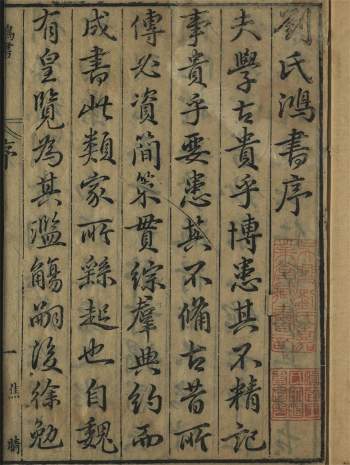 劉氏鴻書序
夫學古貴乎博患其不精記
事貴乎要患其不備古昔所
傳必資簡策貫綜羣典約而
成書此類家所繇起也自魏
有皇覽為其濫觴嗣後徐勉
鴻書
序
一
焦